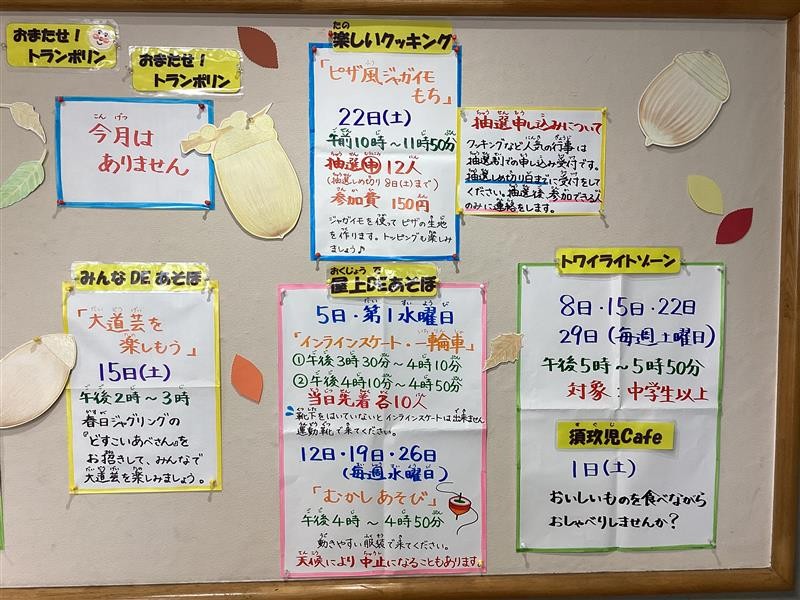 おまたせ！
トランポリン
おまたせ！
トランポリン
今月は
ありません
楽しいクッキング
「ピザ風ジャガイモ
もち」
22日(土)
午前10時～11時50分
抽選申12人
(抽選しめ切り8日(土)まで)
参加費 150円
ジャガイモを使ってピザの生地
を作ります。トッピングも楽しみ
ましょう♪
抽選申し込みについて
クッキングなど人気の行事は
抽選制での申し込み受付です。
抽選しめ切り日までに受付をして
ください。抽選後、参加できる人
のみに連絡をします。
みんなDEあそぼ
「大道芸を
楽しもう」
15日(土)
午後2時～3時
春日ジャグリングの
『どすこいあべさん』を
お招きして、みんなで
大道芸を楽しみましょう。
屋上DEあそぼ
5日・第1水曜日
「インラインスケート・一輪車」
①午後3時30分～4時10分
②午後4時10分～4時50分
当日先着各10人
靴下をはいていないとインラインスケートは出来ません
運動靴で来てください。
12日・19日・26日
(毎週水曜日)
「むかしあそび」
午後4時～4時50分
動きやすい服装で来てください。
天候により中止になることもあります。
トワイライトゾーン
8日・15日・22日
29日(毎週土曜日)
午後5時～5時50分
対象：中学生以上
須玖児Cafe
1日(土)
おいしいものを食べながら
おしゃべりしませんか？